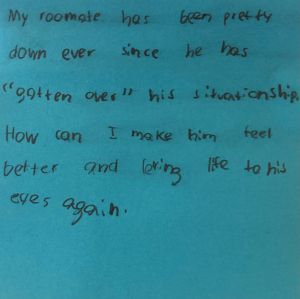 My roomate has been pretty
down ever since he has
"gotten over" his situationship.
How can I make him feel
better and bring life to his
eyes again.